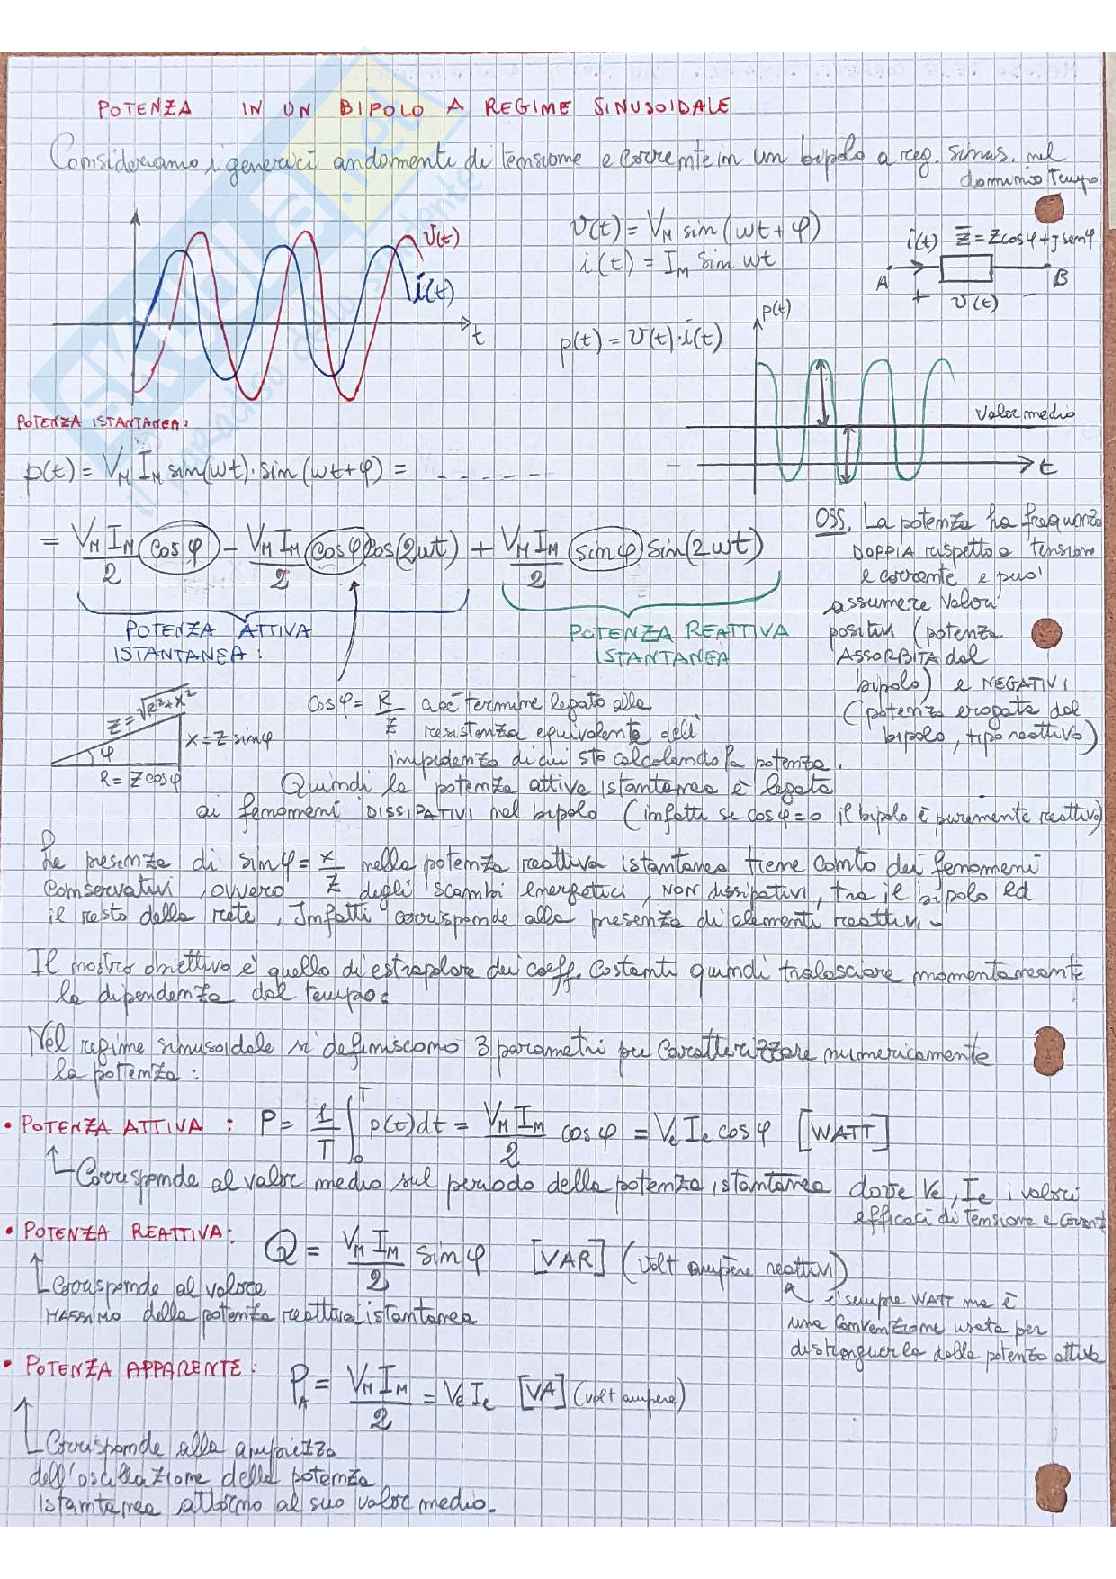 POTENZA IN UN BIPOLO A REGIME SINUSOIDALE
Consideriamo i generici andamenti di tensione e corrente in un bipolo a reg. sinus. nel
dominio tempo
v(t)
i(t)
t
v(t) = V_M sin(ωt + φ)
i(t) = I_M sin ωt
p(t) = v(t)·i(t)
i(t) Z̅ = Z cosφ + j senφ
A B
+ v(t)
p(t)
Valor medio
t
POTENZA ISTANTANEA:
p(t) = V_M I_M sin(ωt)·sin(ωt+φ) = - - - - - -
= V_M I_M/2 cosφ - V_M I_M/2 cosφ cos(2ωt) + V_M I_M/2 sinφ sin(2ωt)
POTENZA ATTIVA
ISTANTANEA:
POTENZA REATTIVA
ISTANTANEA
OSS. La potenza ha frequenza
DOPPIA rispetto a tensione
e corrente e può
assumere valori
positivi (potenza
ASSORBITA dal
bipolo) e NEGATIVI
(potenza erogata dal
bipolo, tipo reattivo)
Z = √R²+X²
φ
X = Z sinφ
R = Z cosφ
cosφ = R/Z cioè termine legato alla
resistenza equivalente dell'
impedenza di cui sto calcolando la potenza.
Quindi la potenza attiva istantanea è legata
ai fenomeni DISSIPATIVI nel bipolo (infatti se cosφ=0 il bipolo è puramente reattivo)
La presenza di sinφ = X/Z nella potenza reattiva istantanea tiene conto dei fenomeni
conservativi, ovvero degli scambi energetici, NON dissipativi, tra il bipolo ed
il resto della rete, Infatti corrisponde alla presenza di elementi reattivi.
Il nostro obiettivo è quello di estrapolare dei coeff. costanti quindi tralasciare momentaneamente
la dipendenza dal tempo.
Nel regime sinusoidale si definiscono 3 parametri per caratterizzare numericamente
la potenza:
• POTENZA ATTIVA : P = 1/T ∫₀ᵀ p(t)dt = V_M I_M/2 cosφ = Ve Ie cosφ [WATT]
Corrisponde al valor medio sul periodo della potenza istantanea dove Ve, Ie i valori
efficaci di tensione e corrent
• POTENZA REATTIVA: Q = V_M I_M/2 sinφ [VAR] (Volt ampère reattivi)
Corrisponde al valore
MASSIMO della potenza reattiva istantanea
è sempre WATT ma è
una convenzione usata per
distinguerla dalla potenza attiva
• POTENZA APPARENTE: P_A = V_M I_M/2 = Ve Ie [VA] (volt ampere)
Corrisponde alla ampiezza
dell'oscillazione della potenza
istantanea attorno al suo valor medio.